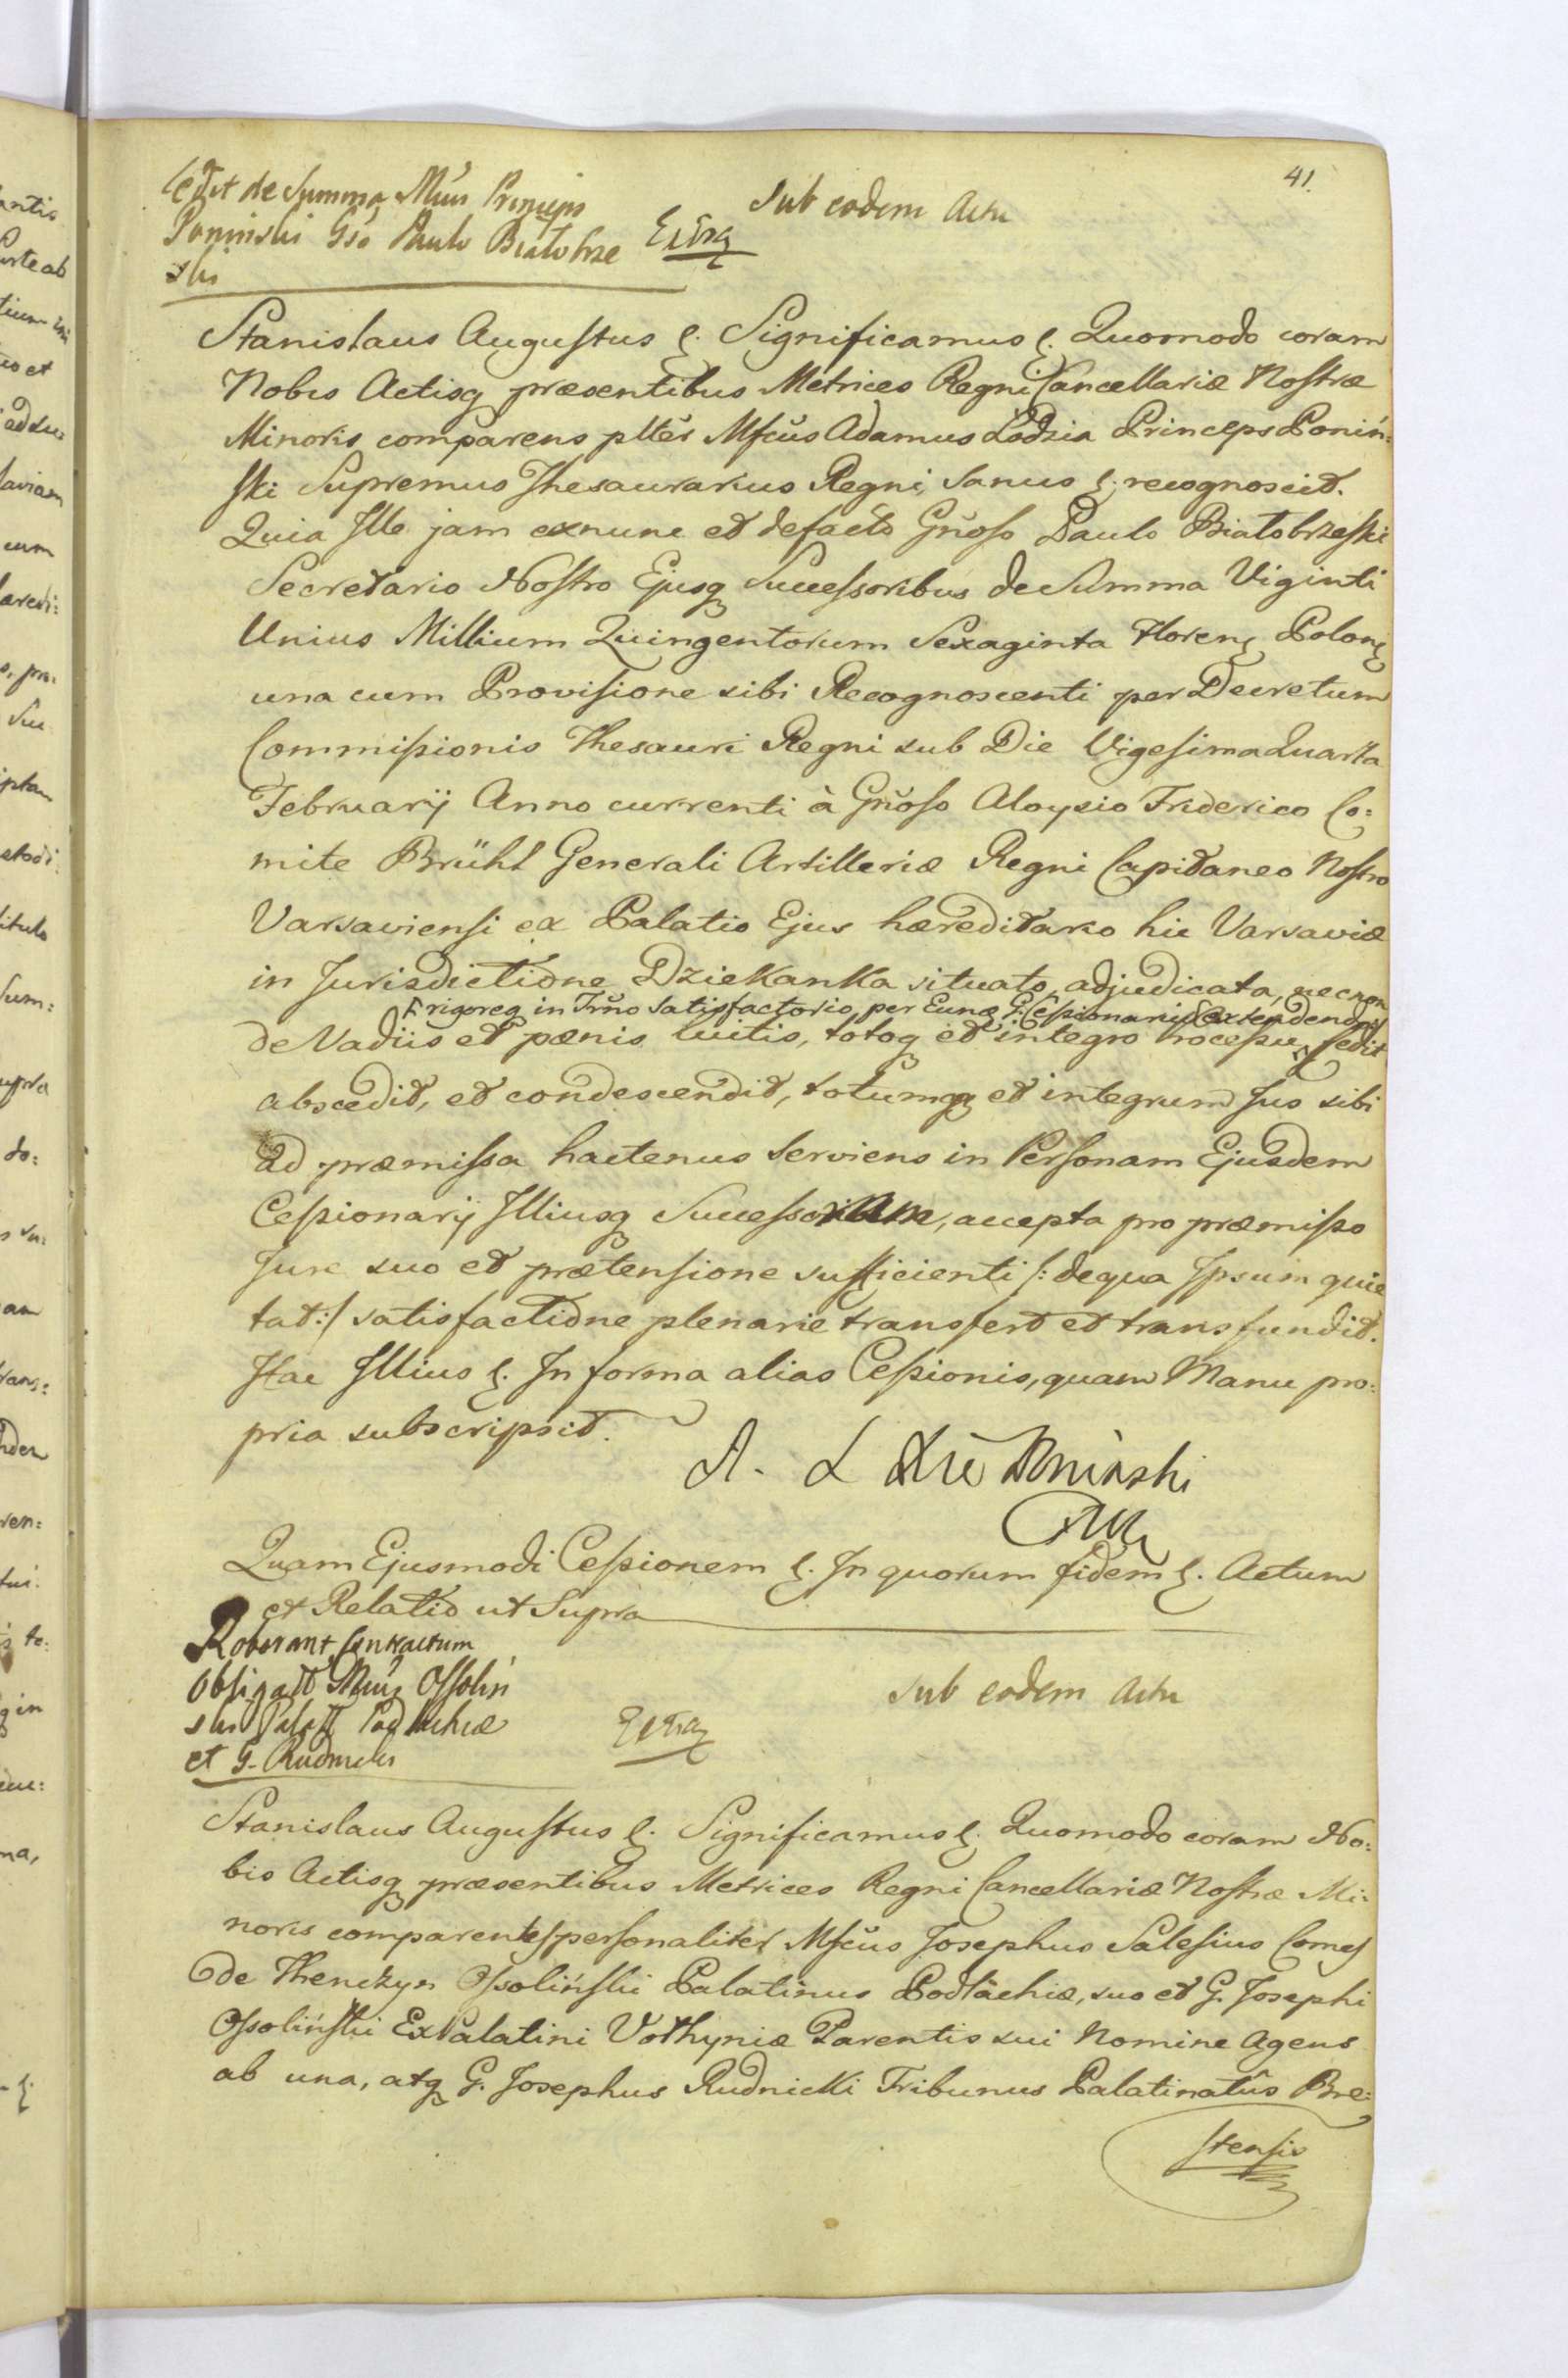 41.
Cedit de Summa Mcus Princeps
Poninski Gso Paulo Białobrze
ski
Extra
Sub eodem Actu
Stanislaus Augustus &. Significamus &. Quomodo coram
Nobis Actisq præsentibus Metrices Regni Cancellariæ Nostræ
Minoris comparens plter Mfcus Adamus Lodzia Princeps Poniń:
ski Supremus Thesaurarius Regni, Sanus &. recognoscit.
Quia Ille jam exnunc et defacto Gnoso Paulo Białobrzeski
Secretario Nostro Ejusq Successoribus de Summa Viginti
Unius Millium Quingentorum Sexaginta Floren Polon
una cum Provisione sibi Recognoscenti per Decretum
Commissionis Thesauri Regni sub Die Vigesima Quarta
Februarij Anno currenti à Gnoso Aloysio Friderico Co:
mite Brühl Generali Artilleriæ Regni Capitaneo Nostro
Varsaviensi ex Palatio Ejus hæreditario hic Varsaviæ
in Jurisdictione Dziekanka situato, adjudicata, necnon
rigoreq in Trno Satisfactorio per Eunq G. Cessionarij extendendo
de Vadiis et pænis luitis, totoq et integro processu cedit
abscedit, et condescendit, totumq et integrum Jus sibi
ad præmissa hactenus Serviens in Personam Ejusdem
Cessionarij Illiusq Successorum, accepta pro præmisso
Jure suo et prætensione sufficienti /: de qua Ipsum quie
tat :/ satisfactione plenarie transfert et transfundit.
Hac Illius &. In forma alias Cessionis, quam Manu pro:
pria subscripsit.
A. L. Xże Poniński
Quam Ejusmodi Cessionem &. In quorum fidem &. Actum
et Relatio ut Supra
Roborant Contractum
obligatt Mcus Ossoliń
ski Palatt Podlachiæ
et G. Rudnicki
Extra
Sub eodem Actu
Stanislaus Augustus &. Significamus &. Quomodo coram No:
bis Actisq præsentibus Metrices Regni Cancellariæ Nostræ Mi:
noris comparentes personaliter Mfcus Josephus Salesius Comes
de Thenczyn Ossoliński Palatinus Podlachiæ, suo et G. Josephi
Ossoliński Ex Palatini Volhyniæ Parentis sui Nomine Agens
ab una, atq G. Josephus Rudnicki Tribunus Palatinatûs Bre:
stensis